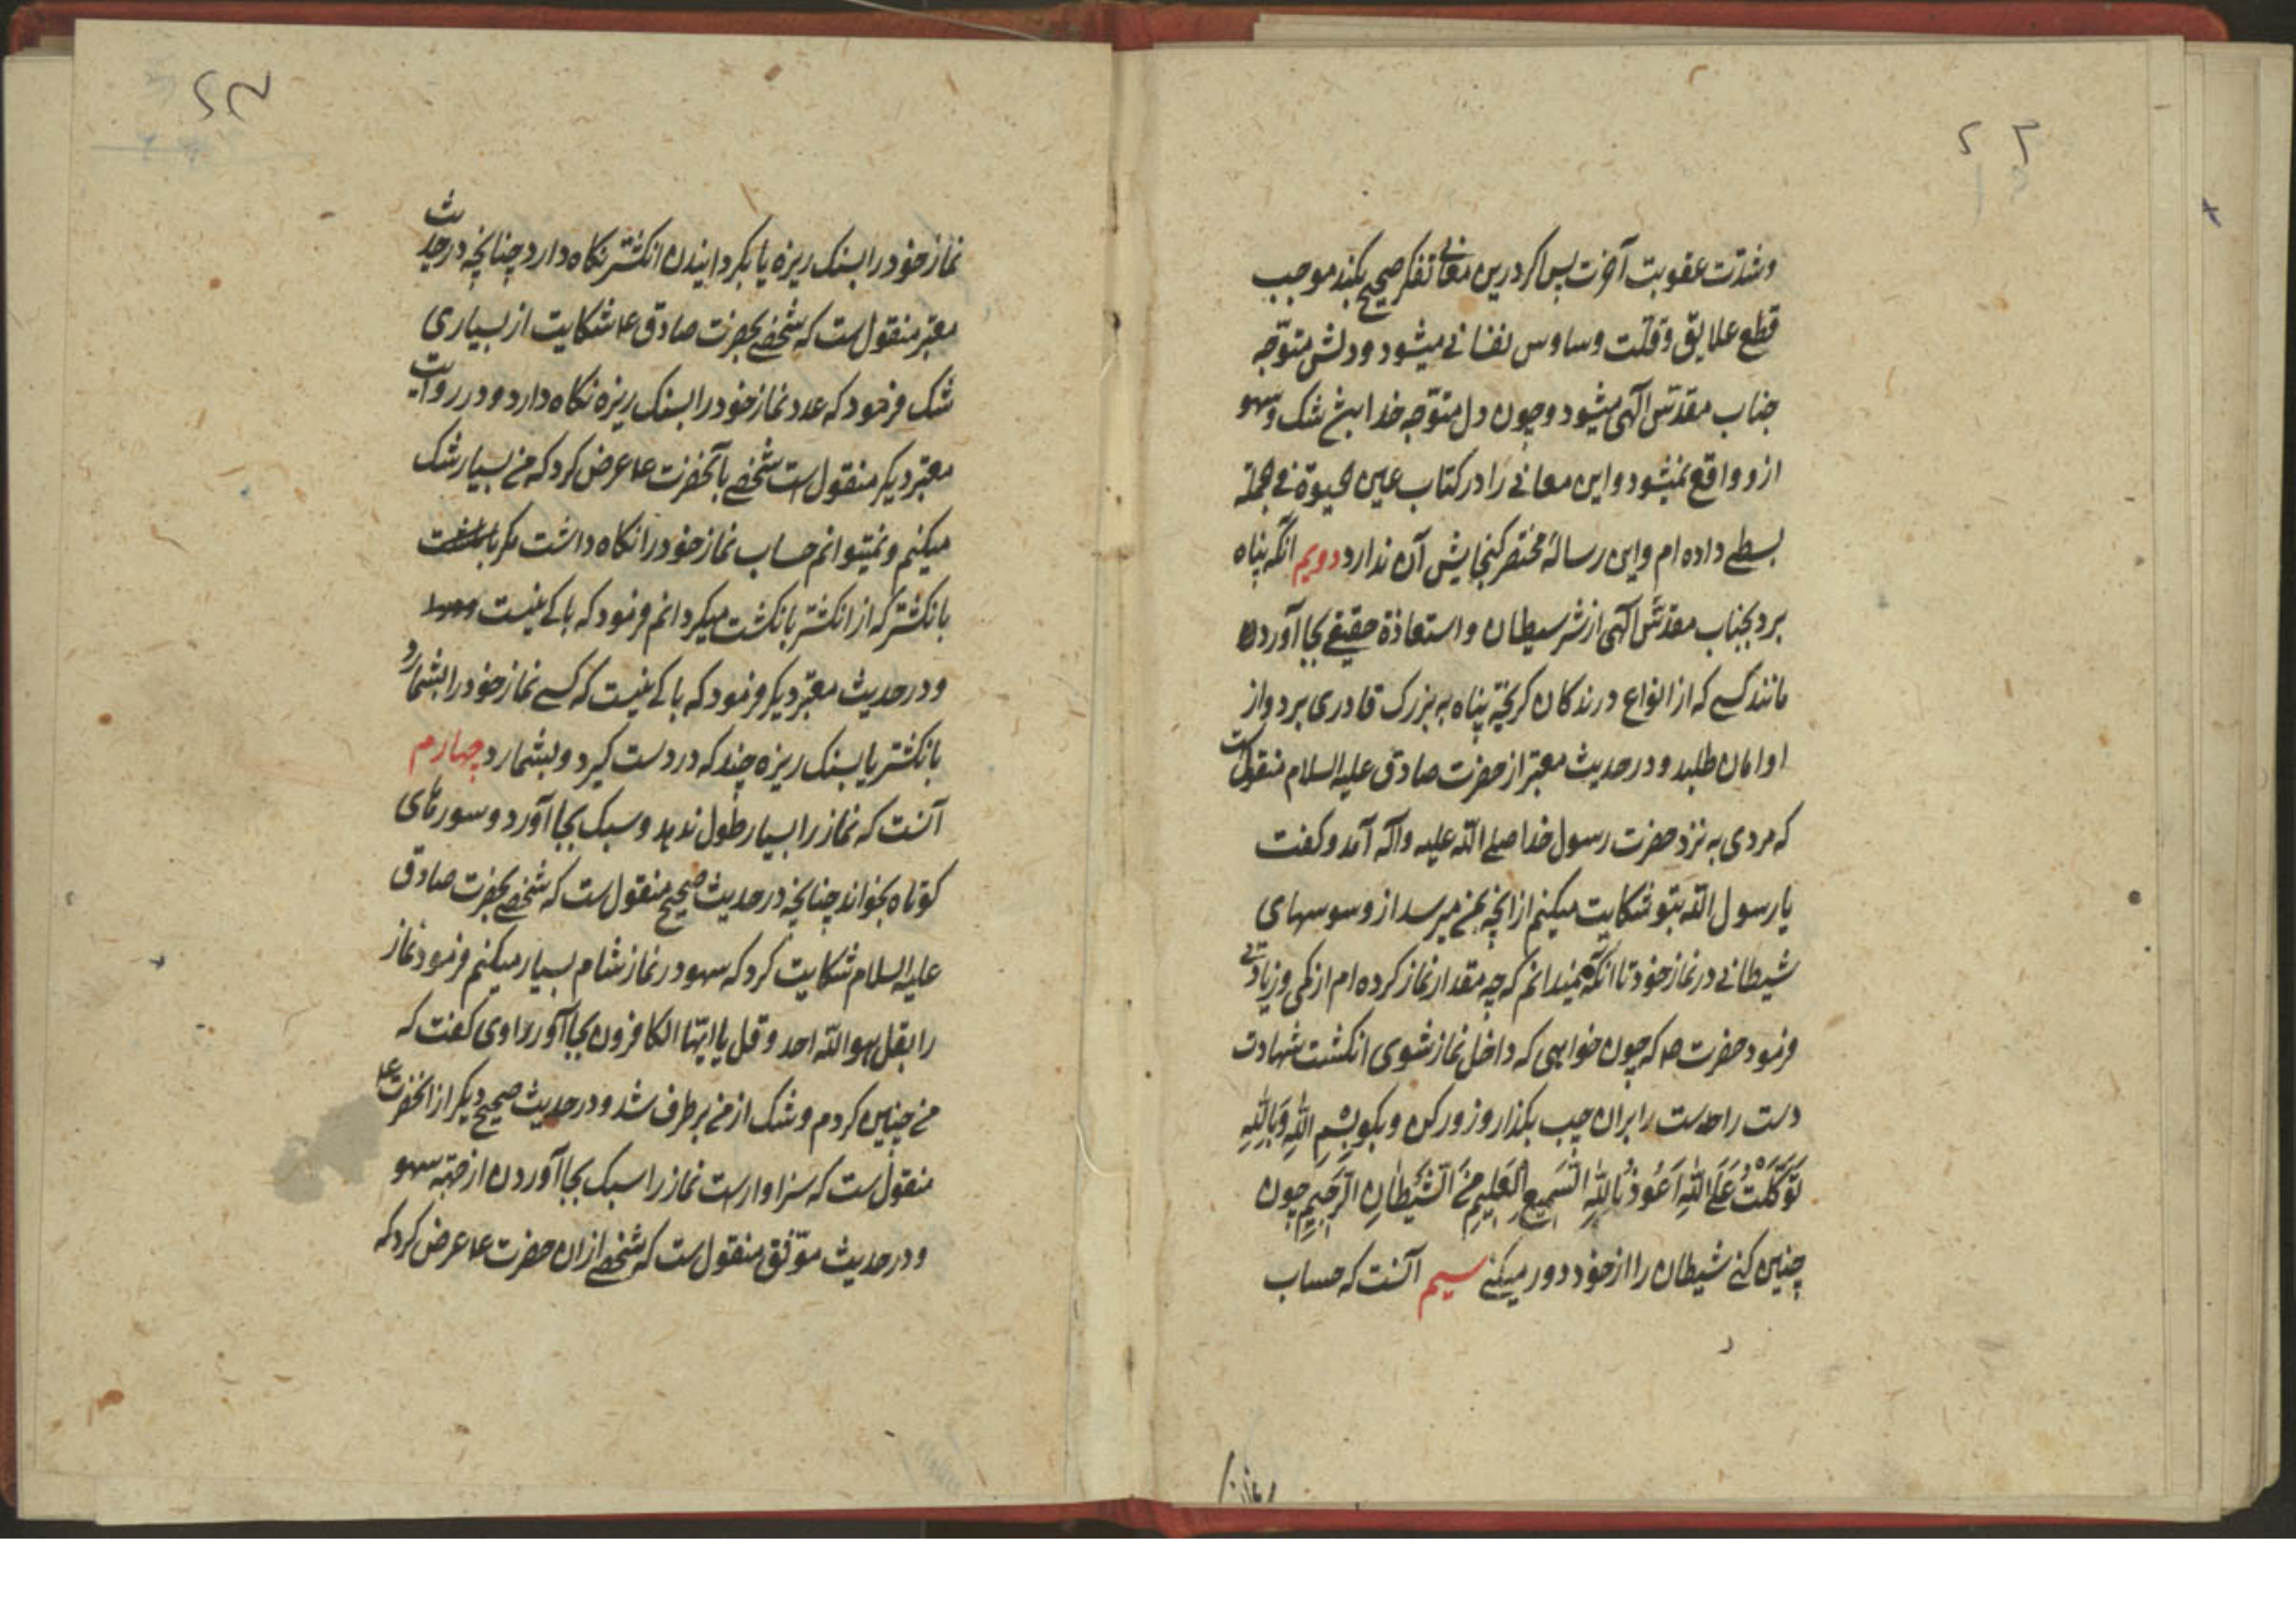 وشدّت عقوبت آخرت پس اگر درین معانی تفکر صحیح بکند موجب
قطع علایق وقلّت وساوس نفسانی میشود ودلش متوّجه
جناب مقدّس الهی میشود وچون دل متوّجه خدا شد شک وسهو
ازو واقع نمیشود واین معانی را در کتاب عین الحیوة فی الجمله
بسطی داده ام واین رسالهٔ مختصر کنجایش آن ندارد دویم انکه پناه
برد بجناب مقدّس الهی از شر سیطان واستعاذهٔ حقیقی بجا آورد
مانند کسی که از انواع درندکان کریخته پناه به بزرک قادری برد واز
او امان طلبد ودر حدیث معتبر از حضرت صادق علیه السلام منقولست
که مردی به نزد حضرت رسول خدا صلی الله علیه واله آمد وکفت
یا رسول الله بتو شکایت میکنم از انچه بمن میرسد از وسوسهای
شیطانی در نماز خود تا انکه نمیدانم که چه مقدار نماز کرده ام از کمی وزیادتی
فرمود حضرت ص که چون خواهی که داخل نماز شوی انکشت شهادت
دست راست را بران چپ بکذار وزور کن وبکو بِسْمِ اللهِ وَبِاللهِ
تَوَكَّلْتُ عَلَى اللهِ اَعُوذُ بِاللهِ السَّمِيعِ الْعَلِيمِ مِنَ الشَّيْطَانِ الرَّجِيمِ چون
چنین کنی شیطان را از خود دور میکنی سیم آنست که حساب
نماز خود را بسنک ریزه یا بکردانیدن انکشتر نکاه دارد چنانچه در حدیث
معتبر منقولست که شخصی بحضرت صادق ع شکایت از بسیاری
شک فرمود که عدد نماز خود را بسنک ریزه نکاه دارد ودر روایت
معتبر دیکر منقول است شخصی بآنحضرت ع عرض کرد که من بسیار شک
میکنم ونمیتوانم حساب نماز خود را نکاه داشت مکر
بانکشتر که از انکشتر بانکشت میکردانم فرمود که باکی نیست
ودر حدیث معتبر دیکر فرمود که باکی نیست که کسی نماز خود را بشمارد
بانکشتر یا بسنک ریزه چند که در دست کیرد وبشمارد چهارم
آنست که نماز را بسیار طول ندهد وسبک بجا آورد وسورهای
کوتاه بخواند چنانچه در حدیث صحیح منقولست که شخصی بحضرت صادق
علیه السلام شکایت کرد که سهو در نماز شام بسیار میکنم فرمود نماز
را بقل هو الله احد وقل یا ایّها الکافرون بجا آور راوی کفت که
من چنین کردم وشک از من برطرف شد ودر حدیث صحیح دیکر از انحضرت ع
منقولست که سزاوار است نماز را سبک بجا آوردن از جهة سهو
ودر حدیث موّثق منقولست که شخصی ازان حضرت ع عرض کرد که